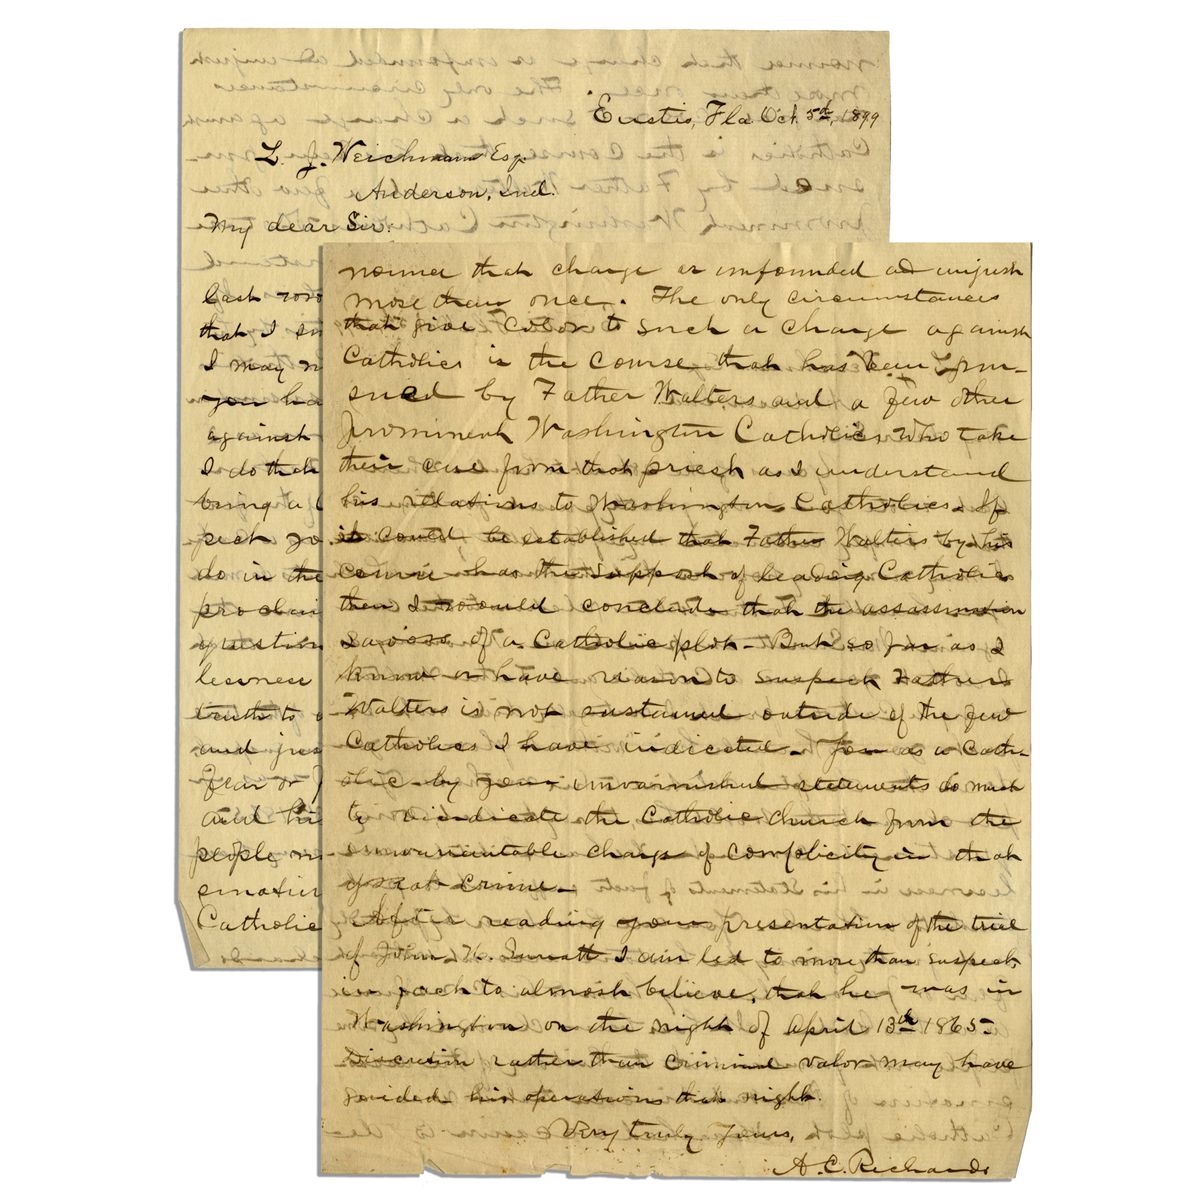 Eustis, Fla Oct. 5th, 1899
L. J. Weichmann Esq.
Anderson, Ind.
My dear Sir:
Last
that I
I may
you ha
against
I do that
being a C
pect yo
do in the
proclai
question
lessness
truth to
and jus
fear or f
and his
people
Catholic
nounce that charge as unfounded as unjust
more than once. The only circumstances
that give color to such a charge against
Catholics is the course that has been pur-
sued by Father Walters and a few other
prominent Washington Catholics who take
their cue from that priest as I understand
his relations to Washington Catholics. If
it could be established that Father Walters by his
course has the support of leading Catholics
then I would conclude that the assassination
savors of a Catholic plot - But so far as I
know or have reason to suspect Father
Walters is not sustained outside of the few
Catholics I have indicated - You as a Cath-
olic - by your unvarnished statements do much
to vindicate the Catholic church from the
unwarrantable charge of complicity in that
great crime -
After reading your presentation of the trial
of John H. Surratt I am led to more than suspect,
in fact to almost believe, that he was in
Washington on the night of April 13th 1865 -
Discretion rather than criminal valor may have
guided his operations that night.
Very truly yours,
A. C. Richards